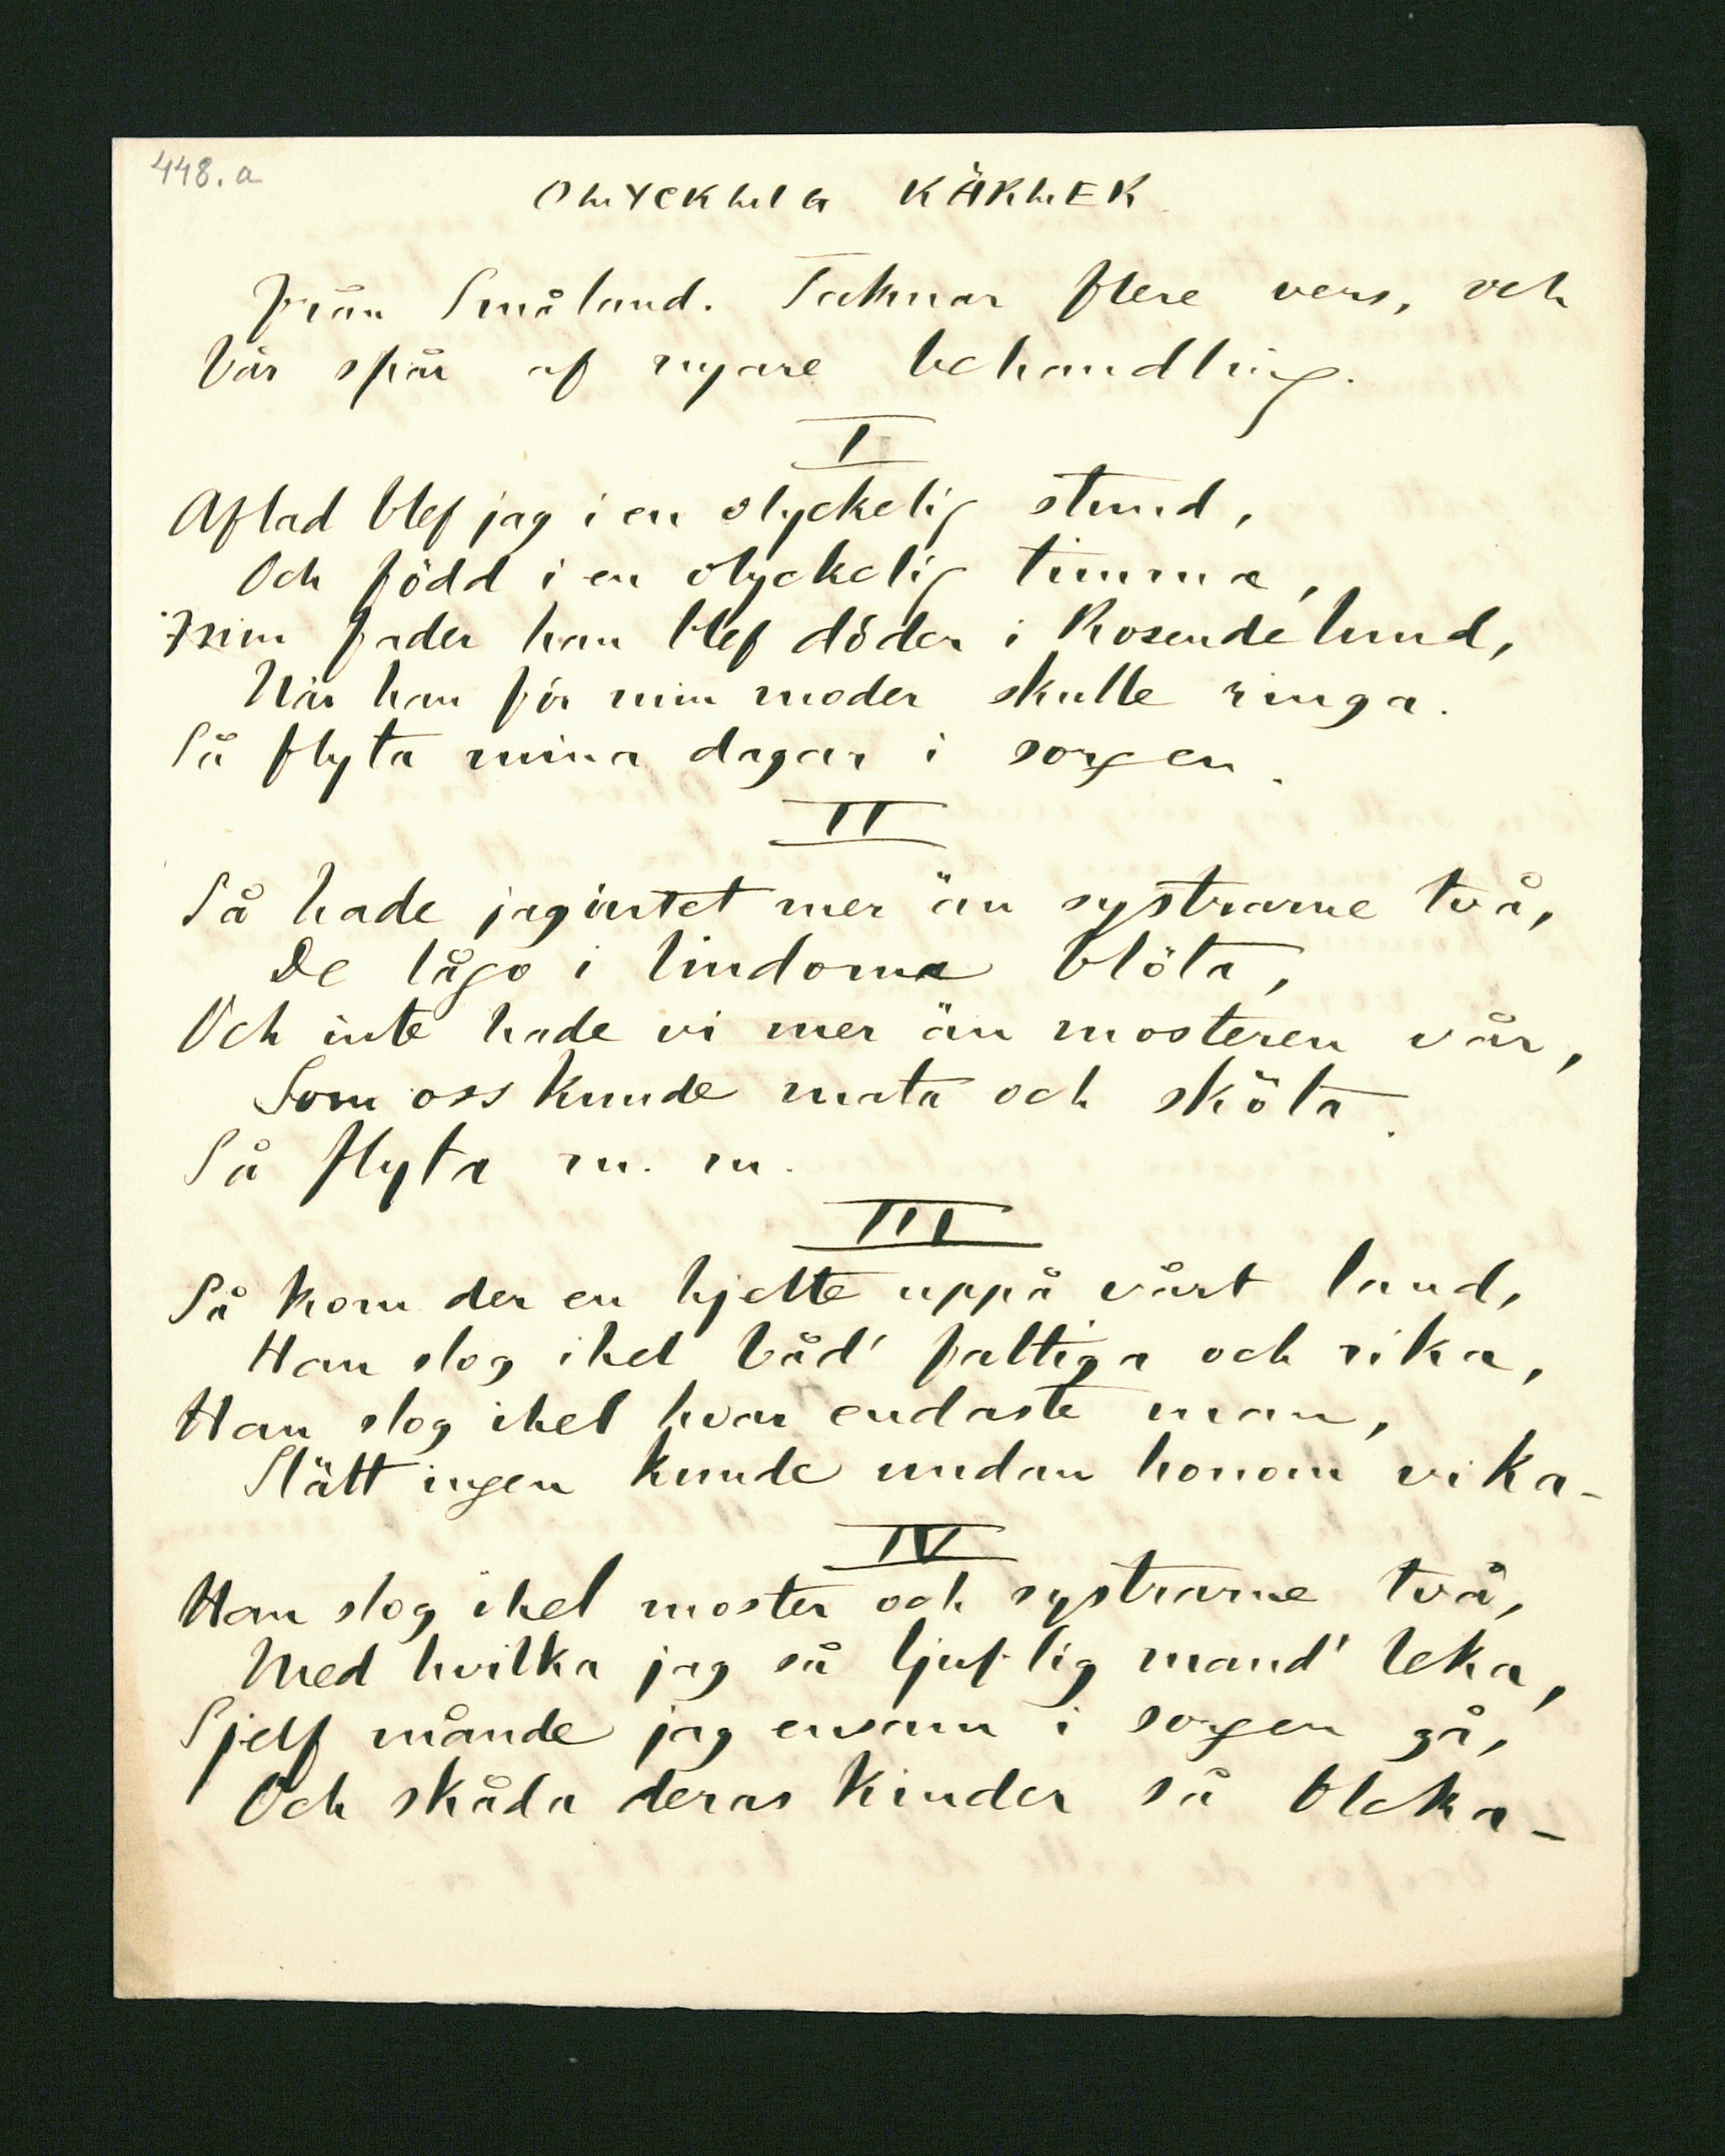 448.a
OLYCKLIG KÄRLEK
Från Småland. Saknar flere vers, och
bär spår af nyare behandling.
I
Aflad blef jag i en olyckelig stund,
Och född i en olyckelig timma,
Min fader han blef döder i Rosendelund,
När han för min moder skulle ringa.
Så flyta mina dagar i sorgen.
II
Så hade jag intet mer än systrarne två,
De lågo i lindorna blöta,
Och inte hade vi mer än mosteren vår,
Som oss kunde mata och sköta.
Så flyta m. m.
III
Så kom der en hjelte uppå vårt land,
Han slog ihel båd' fattiga och rika,
Han slog ihel hvar endaste man,
Slätt ingen kunde undan honom vika_
IV
Han slog ihel moster och systrarne två,
Med hvilka jag så ljuflig mand' leka,
Sjelf månde jag ensam i sorgen gå,
Och skåda deras kinder så bleka_